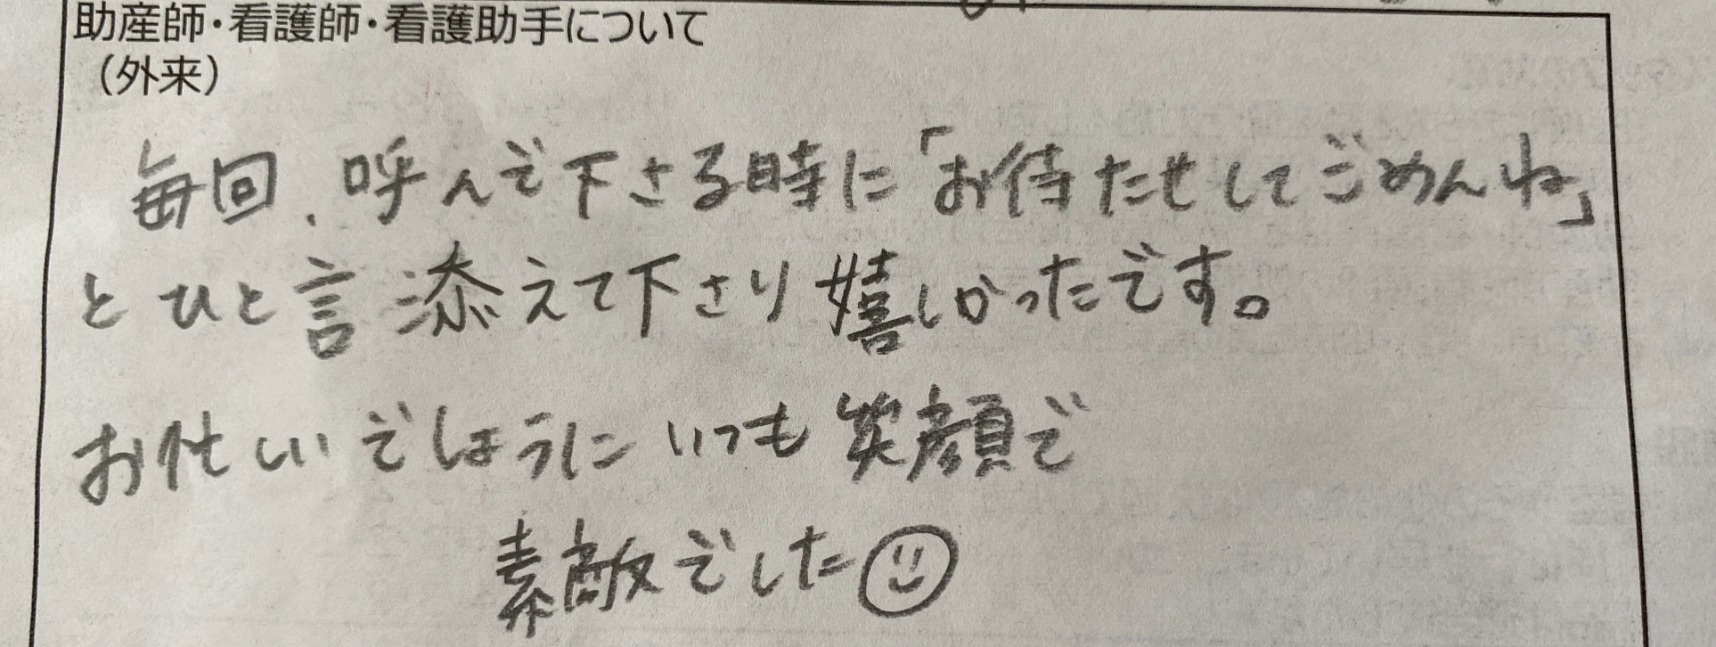 助産師・看護師・看護助手について
（外来）
毎回、呼んで下さる時に「お待たせしてごめんね」
とひと言添えて下さり嬉しかったです。
お忙しいでしょうにいつも笑顔で
素敵でした